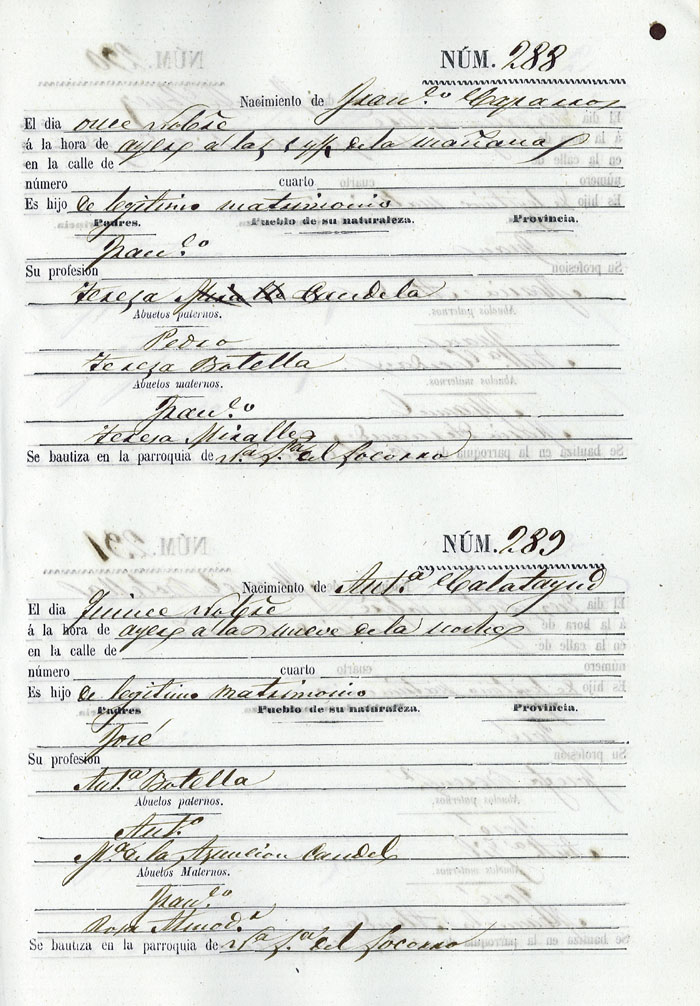 NÚM. 288
Nacimiento de Fran.co Caparros
El dia once Nobre
á la hora de ayer a las de la mañana
en la calle de
número cuarto
Es hijo de legitimo matrimonio
Padres. Pueblo de su naturaleza. Provincia.
Fran.co
Su profesión
Teresa Candela
Abuelos paternos.
Pedro
Teresa Botella
Abuelos maternos.
Fran.co
Teresa Miralles
Se bautiza en la parroquia de N.a S.ra del Socorro
NÚM. 289
Nacimiento de Ant.a Calatayud
El dia Quince Nobre
á la hora de ayer a las nueve de la noche
en la calle de
número cuarto
Es hijo de legitimo matrimonio
Padres Pueblo de su naturaleza. Provincia.
José
Su profesión
Ant.a Botella
Abuelos paternos.
Ant.o
M.a de la Asuncion Candel
Abuelos Maternos.
Fran.co
Rosa
Se bautiza en la parroquia de N.a S.ra del Socorro